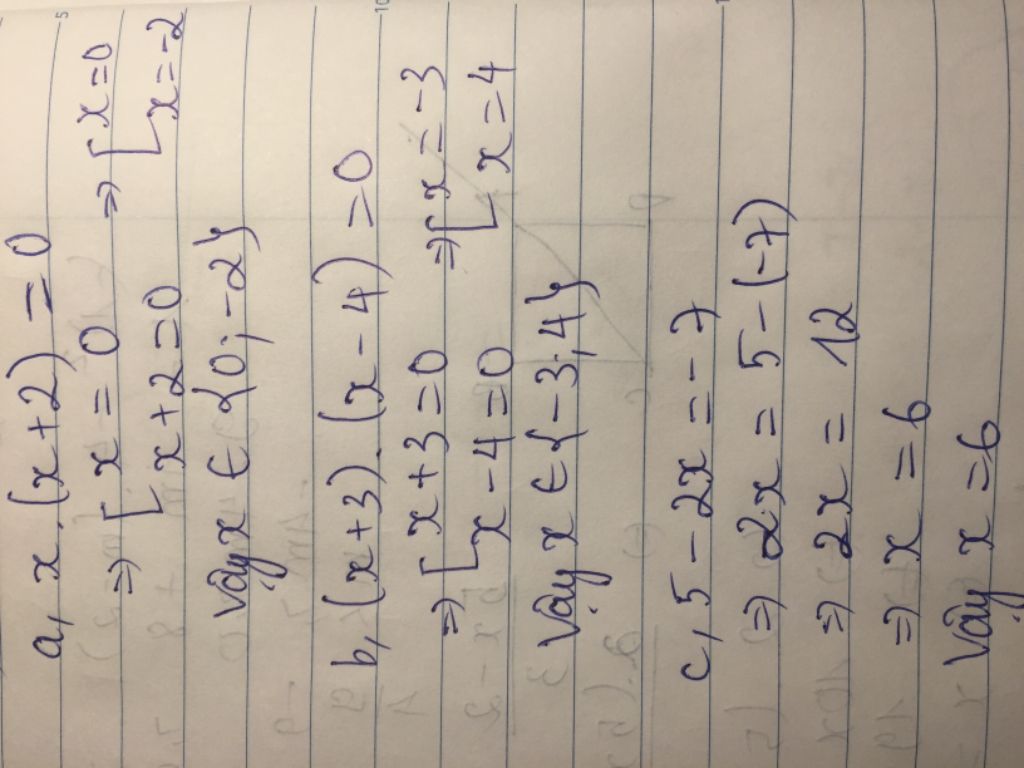 a, x.(x+2) = 0
⇒ [ x = 0 ⇒ [ x = 0
x+2=0 x=-2
Vậy x ∈ {0; -2}
b, (x+3).(x-4) = 0
⇒ [ x+3=0 ⇒ [ x=-3
x-4=0 x=4
Vậy x ∈ {-3; 4}
c, 5-2x = -7
⇒ 2x = 5-(-7)
⇒ 2x = 12
⇒ x = 6
Vậy x = 6